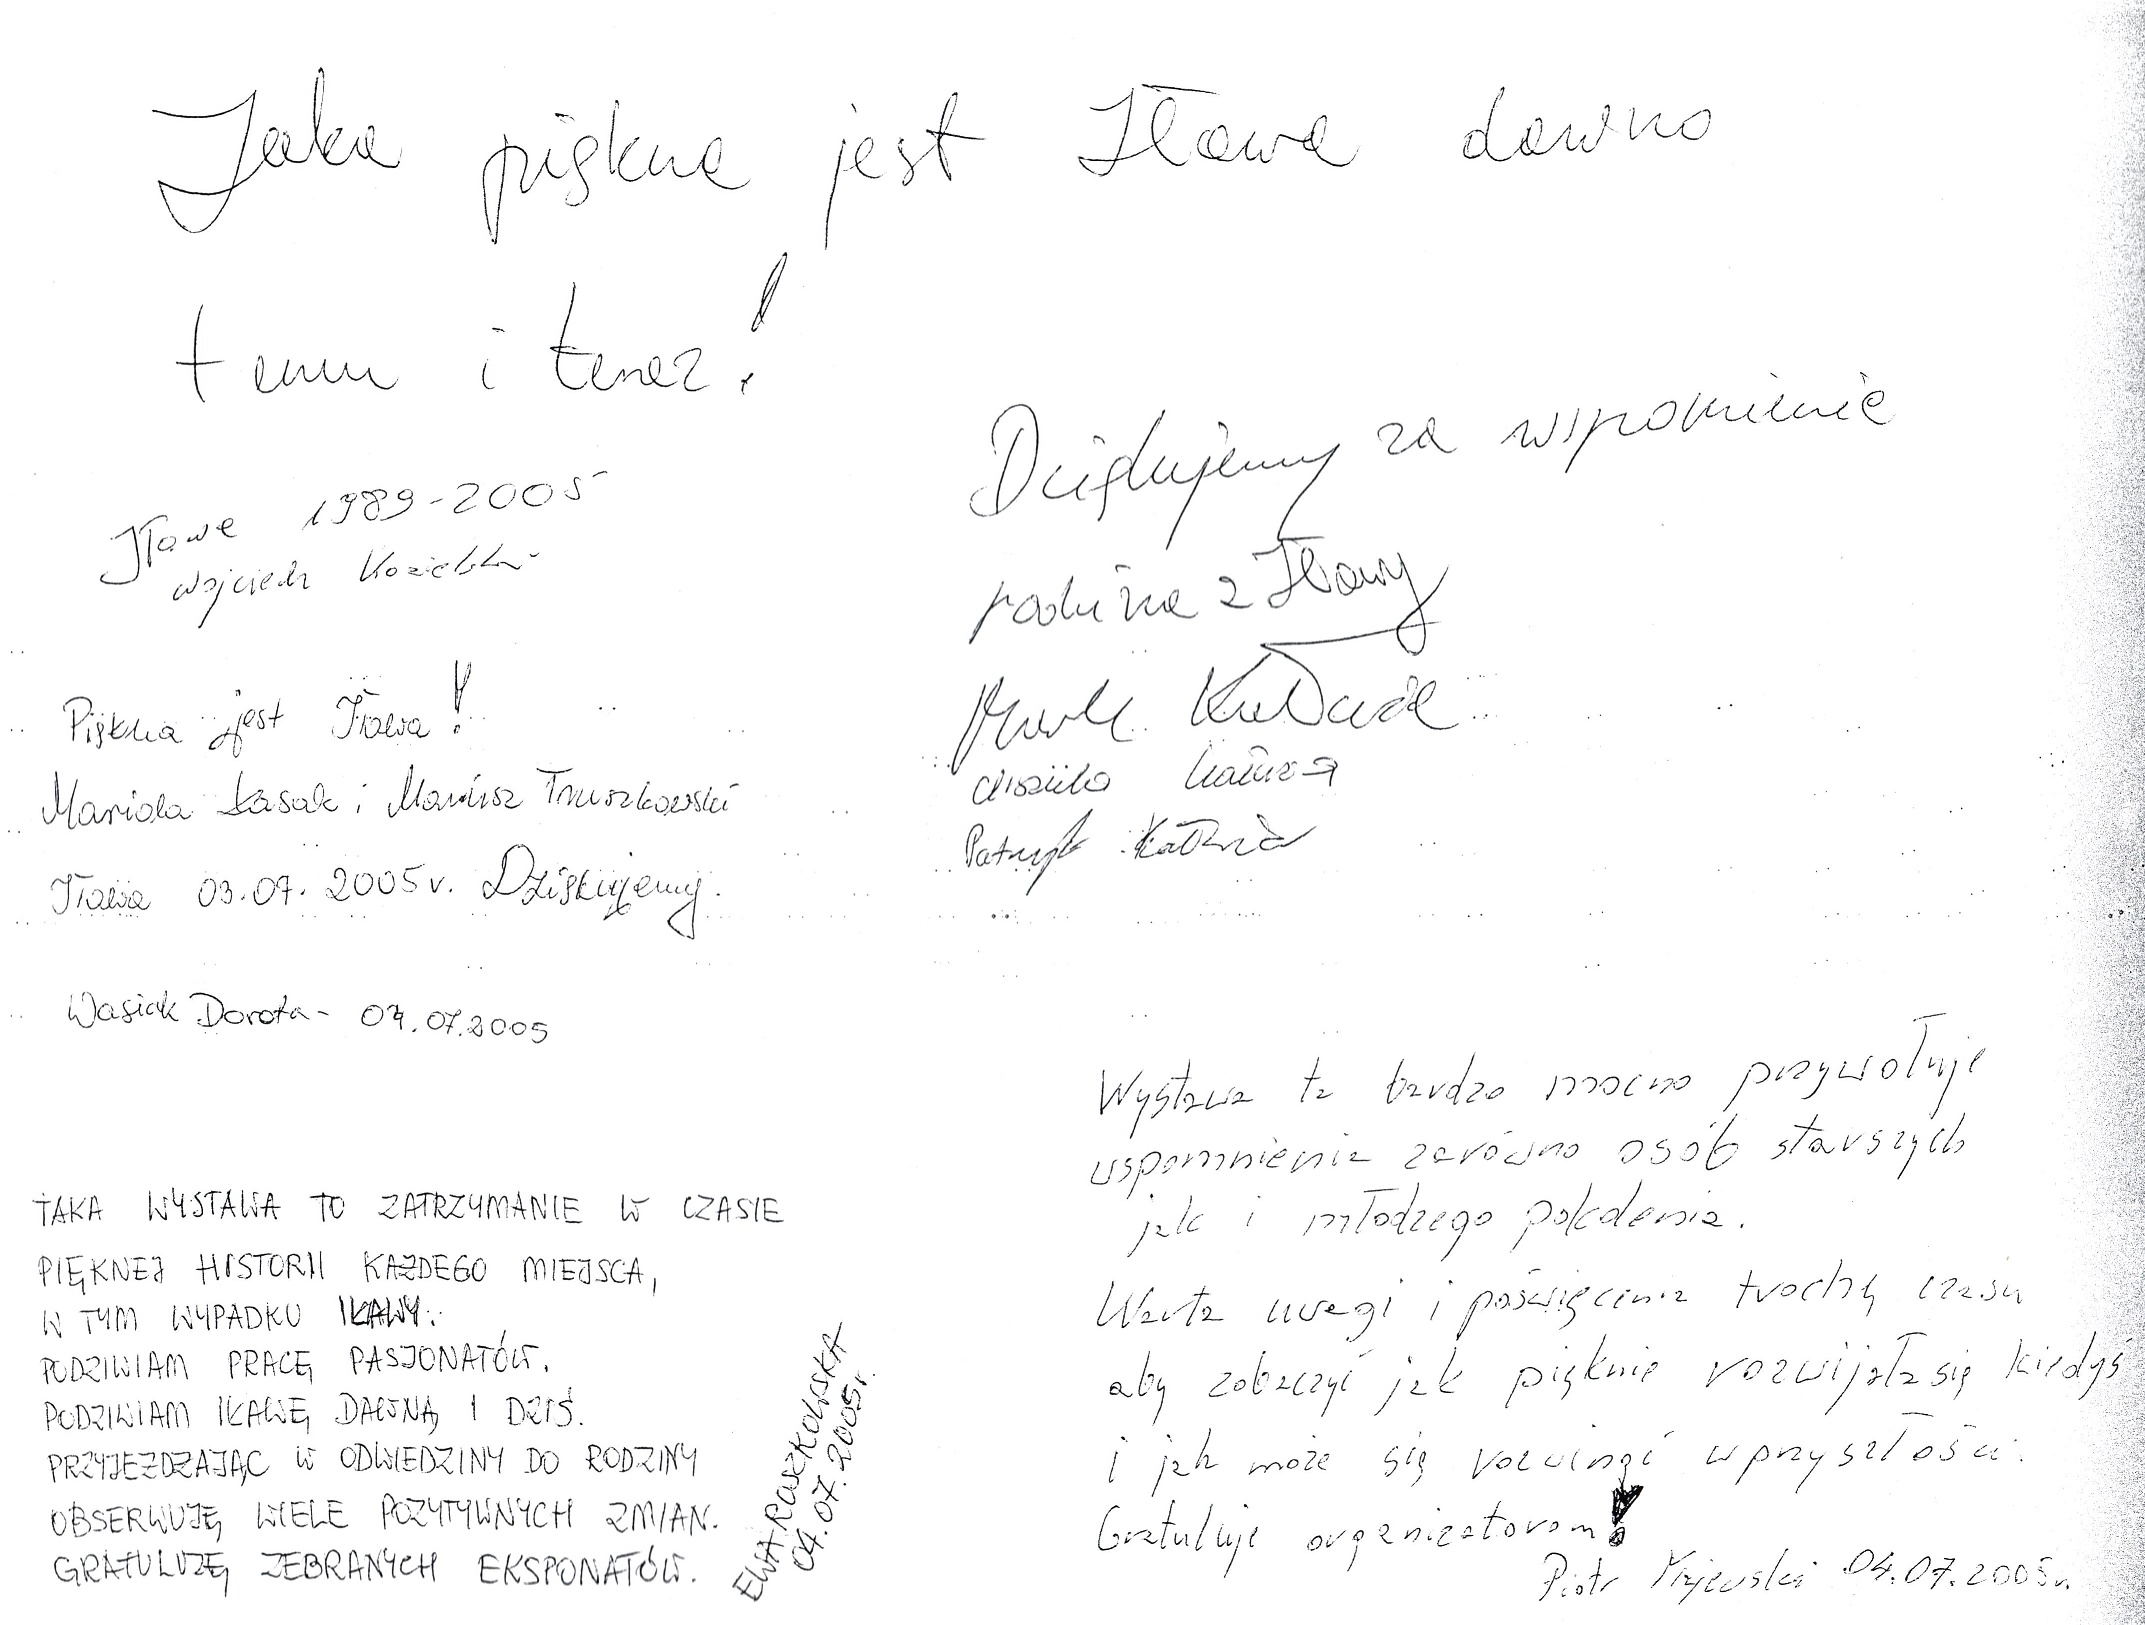 Jaka piękna jest Iława dawno
temu i teraz!
Iława 1989-2005
Wojciech
Piękna jest Iława!
Mariola Łasak i Mariusz Truszkowski
Iława 03.07.2005r. Dziękujemy.
Wasiak Dorota - 04.07.2005
TAKA WYSTAWA TO ZATRZYMANIE W CZASIE
PIĘKNEJ HISTORII KAŻDEGO MIEJSCA,
W TYM WYPADKU IŁAWY.
PODZIWIAM PRACĘ PASJONATÓW.
PODZIWIAM IŁAWĘ DAWNĄ I DZIŚ.
PRZYJEŻDŻAJĄC W ODWIEDZINY DO RODZINY
OBSERWUJĘ WIELE POZYTYWNYCH ZMIAN.
GRATULUJĘ ZEBRANYCH EKSPONATÓW.
EWA ROSZKOWSKA
04.07.2005r.
Dziękujemy za wspomnienie
rodzina z Iławy
Patryk
Wystawa ta bardzo mocno przywołuje
wspomnienia zarówno osób starszych
jak i młodzego pokolenia.
Warta uwagi i poświęcenia trochę czasu
aby zobaczyć jak pięknie rozwijała się kiedyś
i jak może się rozwinąć w przyszłości.
Gratuluję organizatorom!
Piotr Majewski 04.07.2005r.